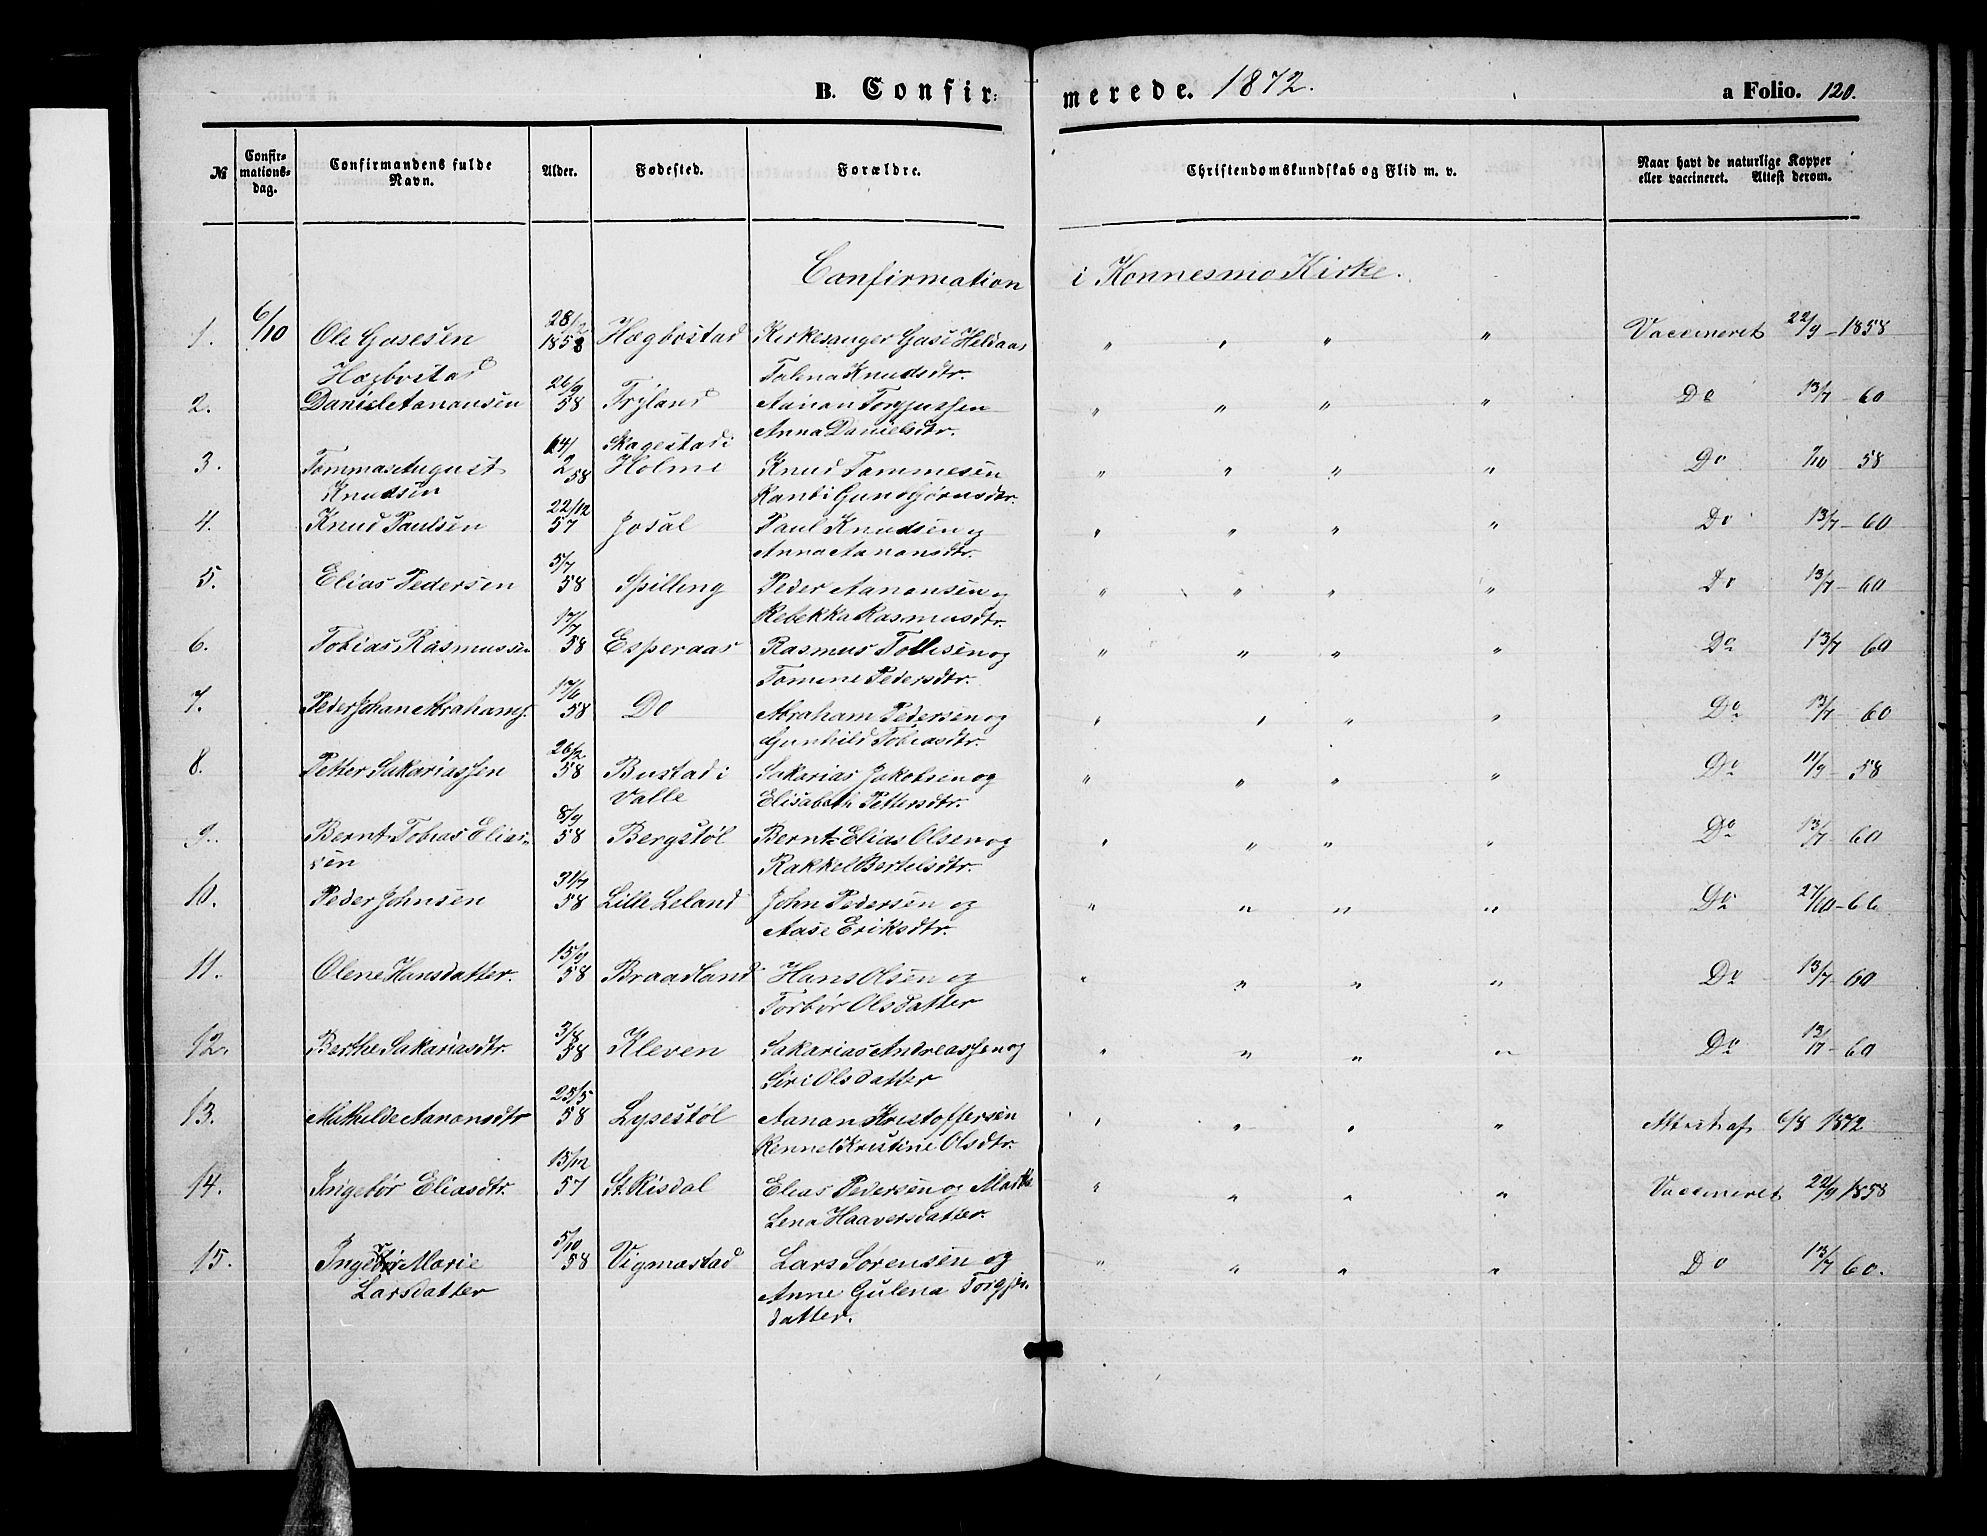 B. Confir: merede. 1872. a Folio. 120.
№ Confir-mations-dag. Confirmandens fulde Navn. Alder. Fødested. Forældre. Christendomskundskab og Flid m. v. Naar havt de naturlige Kopper eller vaccineret. Attest derom.
Confirmation i Konnesmo Kirke.
1. 6/10 Ole Gasesen 28/2 1858 Hægbostad Kirkesanger Gase Heldaas " " " " Vaccineret 22/9 - 1858
Hægbostad Talena Knudsdtr.
2. Daniel Aanonsen 26/9 58 Tryland Aanon Torjussen " " " " Do 13/7 - 60
Anna Danielsdtr.
3. Tommas August 14/2 58 Skagestad i Holme Knud Tommesen " " " " Do /10 58
Knudsen Gundbjørnsdtr.
4. Knud Paulsen 22/12 57 Josal Paul Knudsen og " " " " Do 13/7 - 60
Anna Aanonsdtr.
5. Elias Pedersen 5/7 58 Spilling Peder Aanonsen og " " " " Do 13/7 - 60
Rebekka Rasmusdtr.
6. Tobias Rasmussen 17/7 58 Esperaas Rasmus Tollisen og " " " " Do 13/7 60
Tomine Pedersdtr.
7. Peder Johan Abrahams. 17/6 58 Do Abraham Pedersen og " " " " Do 13/7 - 60
Gunhild Tobiasdtr.
8. Petter Sakariassen 26/2 58 Bustad i Sakarias Jakobsen og " " " " Do 11/9 - 58
Valle Elisabeth Pettersdtr.
9. Bernt Tobias Elias- 8/9 58 Bergstøl Bernt Elias Olsen og " " " " Do 13/7 - 60
sen Rakkel Bertelsdtr.
10. Peder Johnsen 31/7 58 Lille Leland John Pedersen og " " " " Do 27/10 - 66
Aase Eriksdtr.
11. Olene Hansdatter. 15/9 58 Braadland Hans Olsen og " " " " Do 13/7 - 60
Torbør Olsdatter
12. Berthe Sakariasdtr. 3/8 58 Kleven Sakarias Andreassen og " " " " Do 13/7 - 60
Siri Olsdatter
13. Mathilde Aanonsdtr 25/5 58 Lysestøl Aanon Kristoffersen " " " " Attest af 6/8 1872
Rennel Kristine Olsdtr.
14. Ingebør Eliasdtr. 15/12 57 St. Risdal Elias Pedersen og Marthe " " " " Vaccineret 22/9 1858
Lena Haaversdatter.
15. Ingebør Marie 5/10 58 Vigmostad Lars Sørensen og " " " " Do 13/7 60.
Larsdatter Anne Gulena
datter.